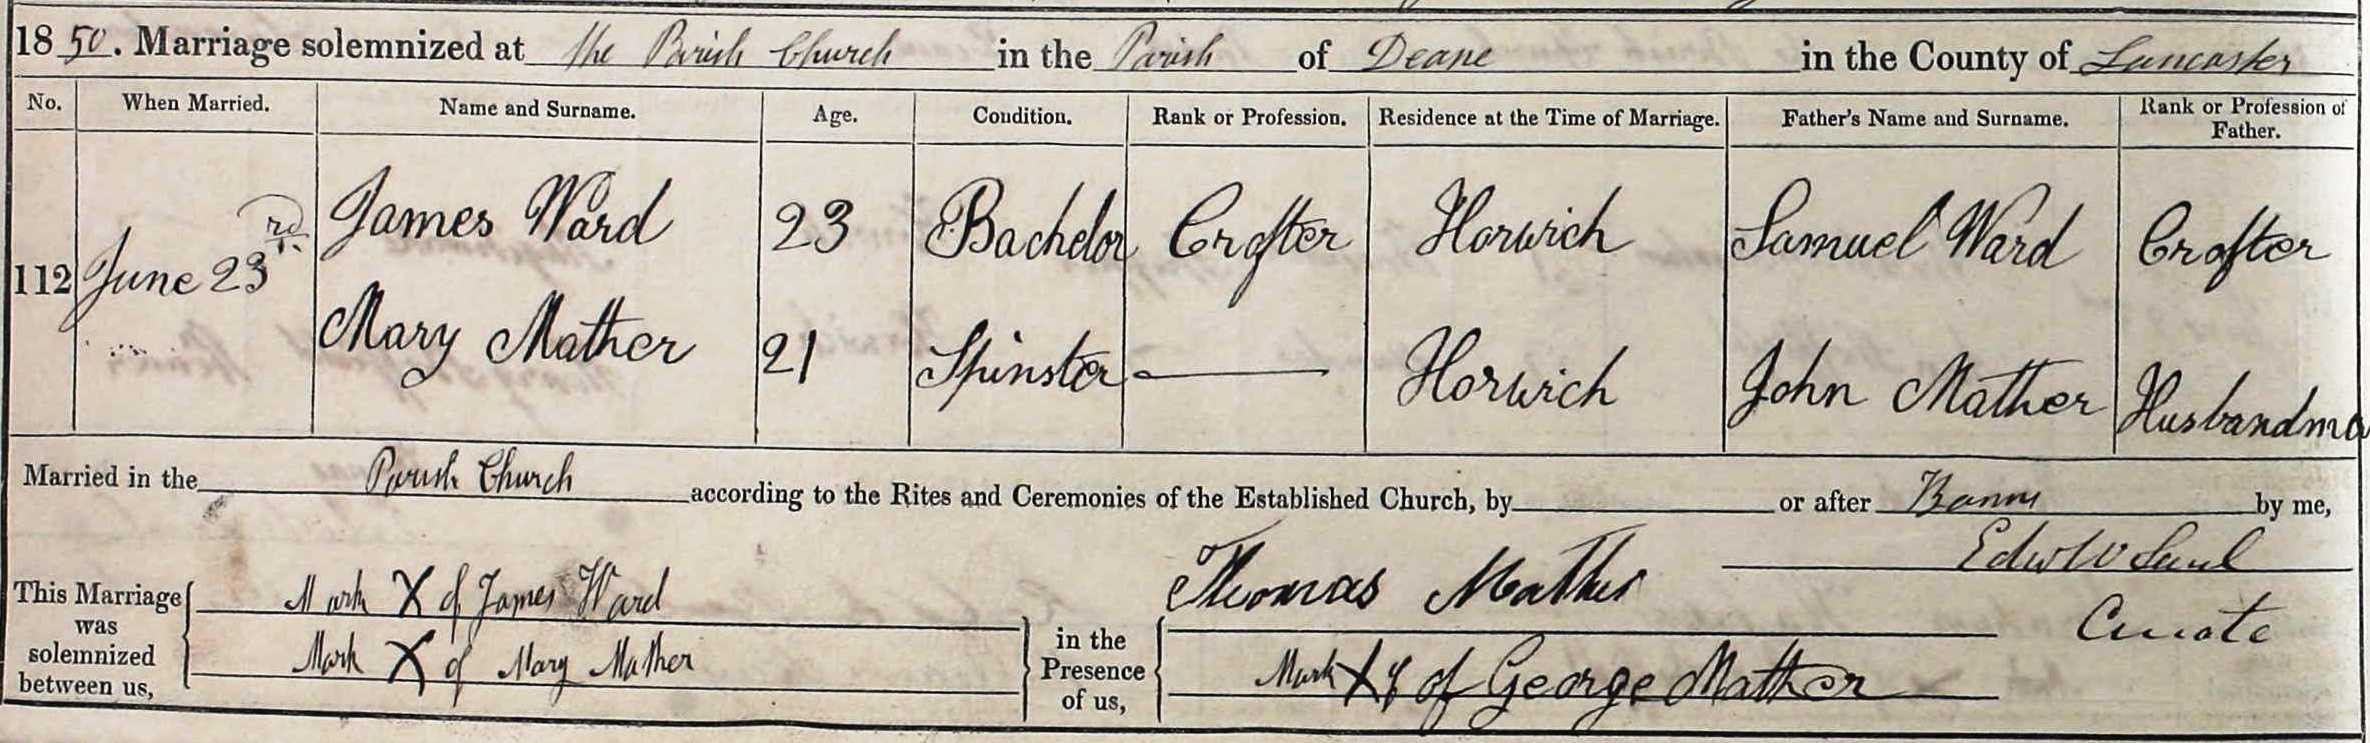 1850. Marriage solemnized at the Parish Church in the Parish of Deane in the County of Lancaster
No. When Married. Name and Surname. Age. Condition. Rank or Profession. Residence at the Time of Marriage. Father's Name and Surname. Rank or Profession of Father.
112 June 23rd James Ward 23 Bachelor Crofter Horwich Samuel Ward Crofter
Mary Mather 21 Spinster — Horwich John Mather Husbandma
Married in the Parish Church according to the Rites and Ceremonies of the Established Church, by or after Banns by me,
Edwd Saul
Curate
This Marriage was solemnized between us,
Mark X of James Ward
Mark X of Mary Mather
in the Presence of us,
Thomas Mather
Mark X of of George Mather